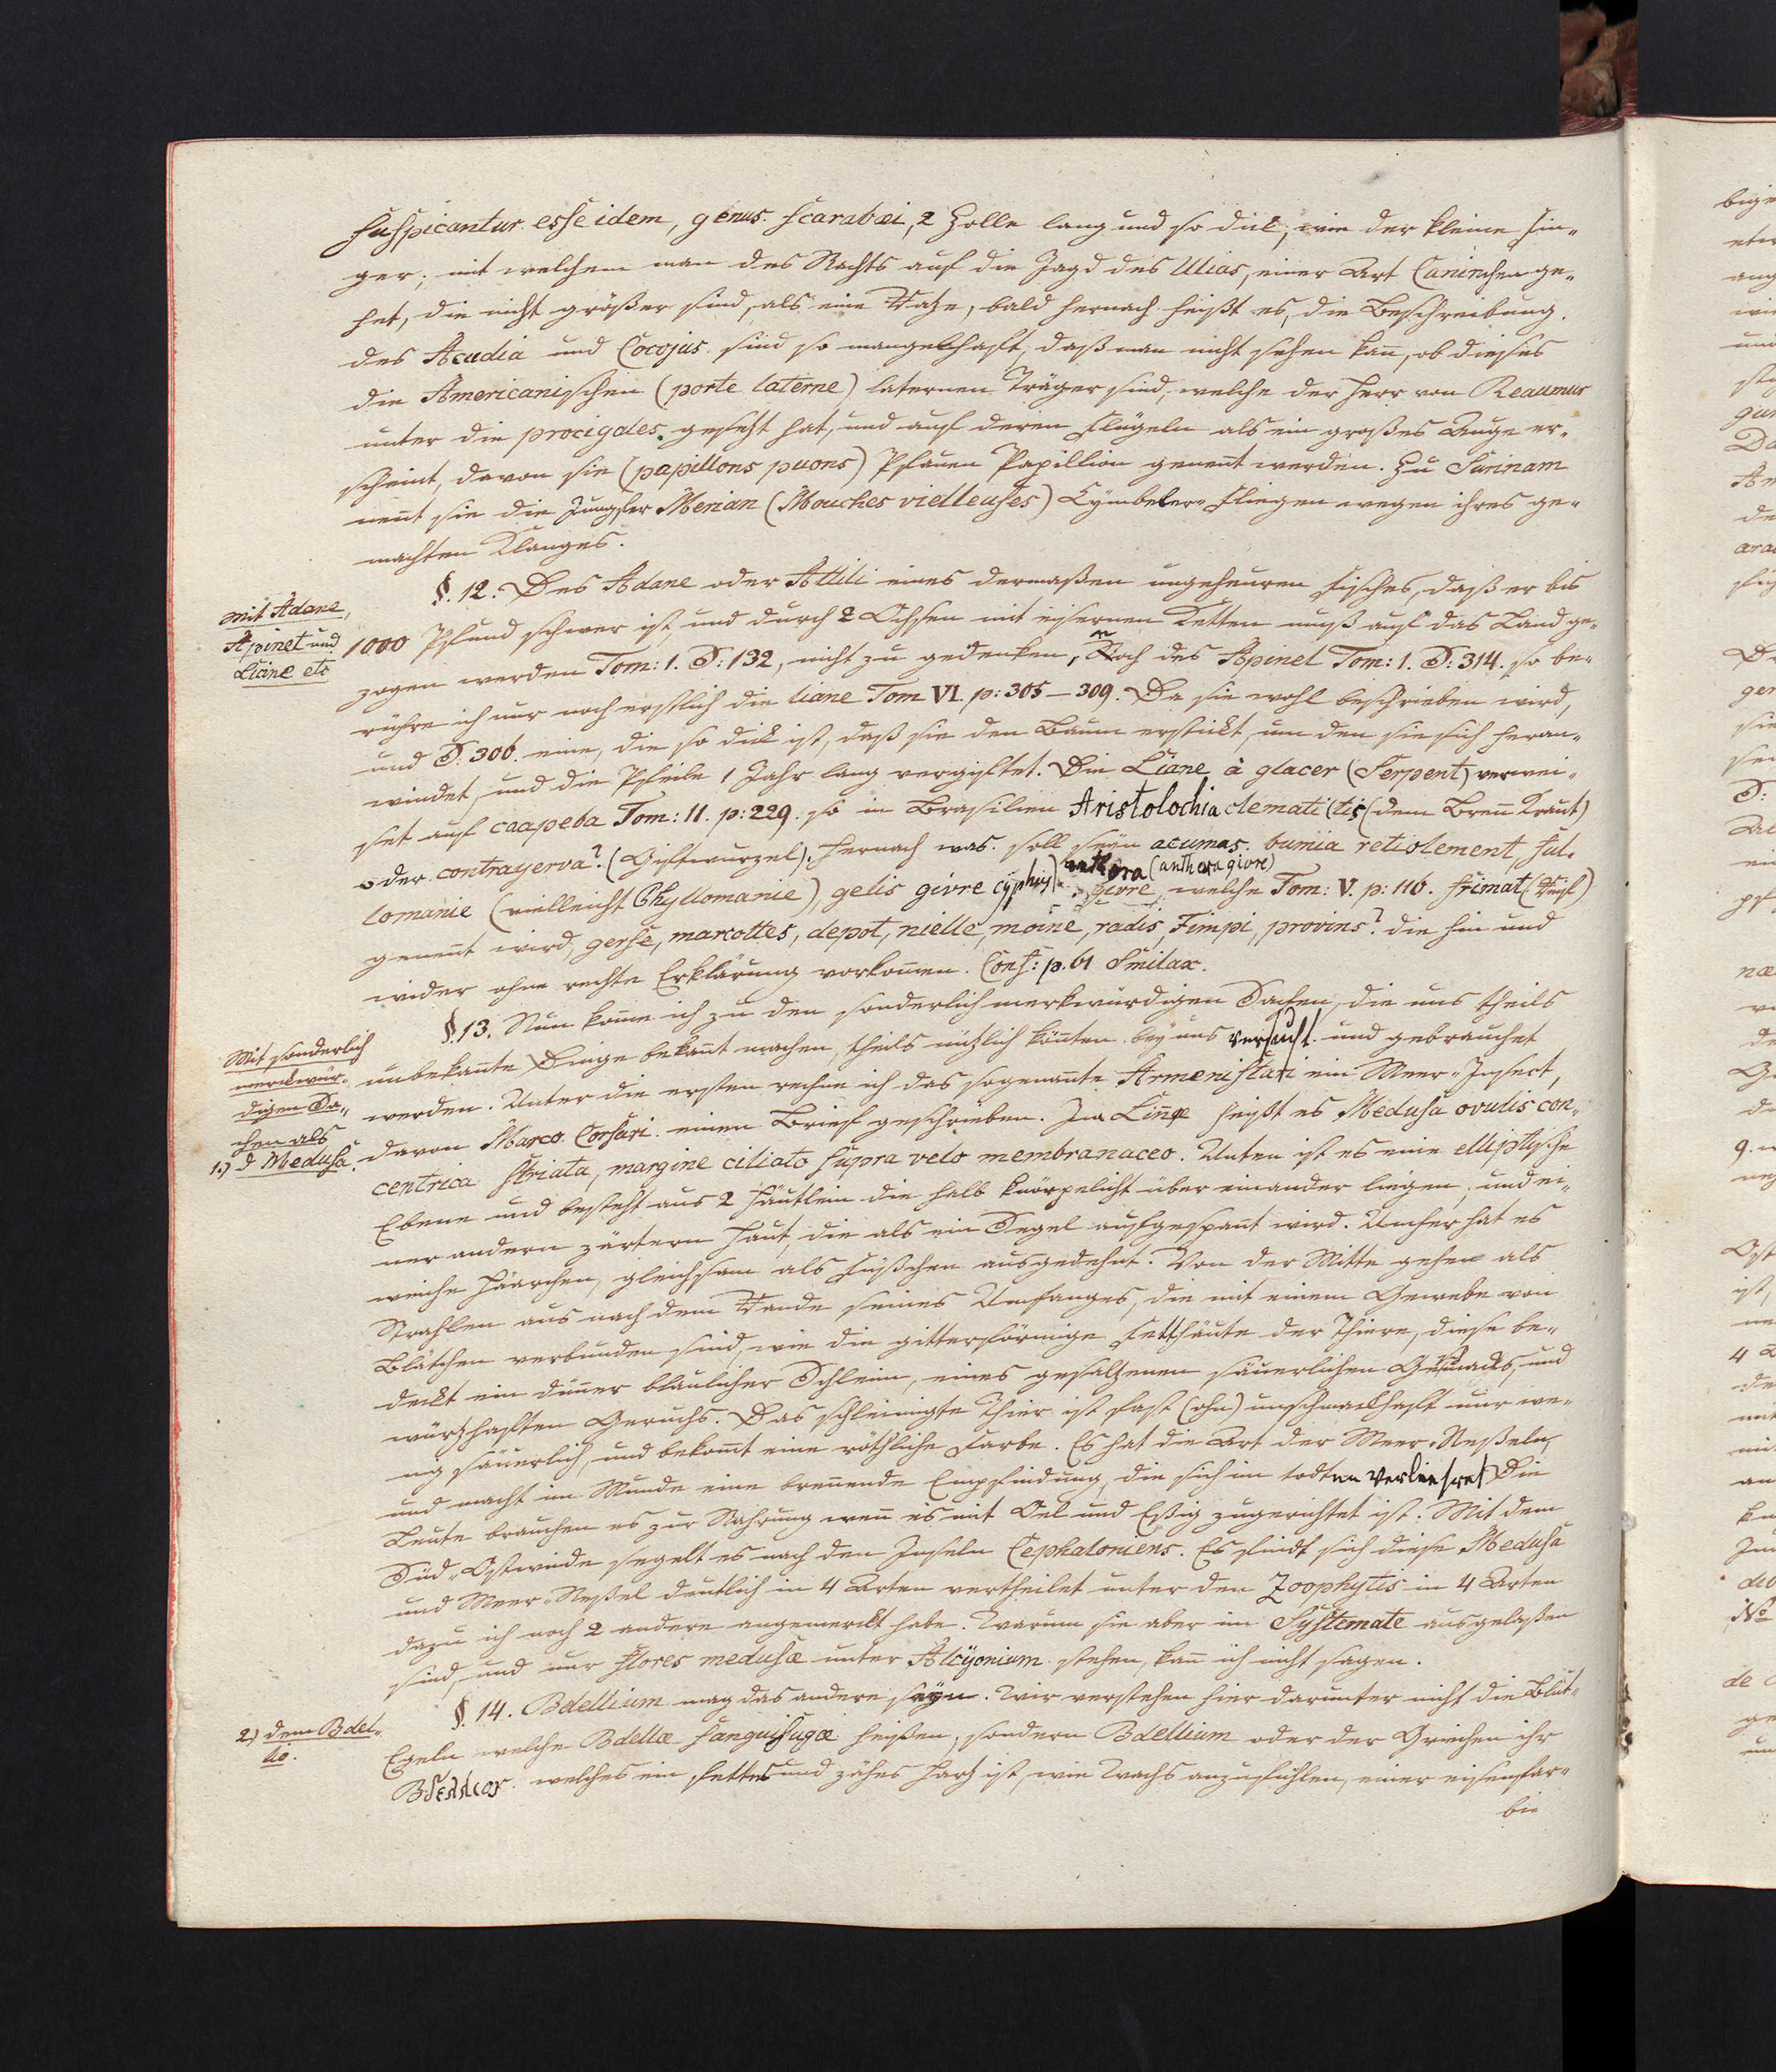 suspicantur esse idem, genus scarabæi, 2 Zolle lang und so dick, wie der kleine Fin„
ger; mit welchem man des Nachts auf die Jagd des Utias, einer Art Caninchen ge„
het, die nicht größer sind, als eine Ratze, bald hernach heißt es, die Beschreibung
des Acudia und Cocojus sind so mangelhaft, daß man nicht sehen kan̄, ob dieses
die Americanischen (porte laterne) laternen Träger sind, welche der Herr von Reaumur
unter die procigales gesetzt hat, und auf deren Flügeln als ein großes Auge er„
scheint, davon sie (papillons puons) Pfauen Papillion genen̄t werden. Zu Surinam
nen̄t sie die Jungfer Merian (Mouches vielleuses) Cymbeler„Fliegen wegen ihres ge„
machten Klanges.
§. 12. Des Adane oder Attili eines dermaßen ungeheuren Fisches, daß er bis
mit Adane,
Apinel und
Liane etc
1000 Pfund schwer ist und durch 2 Ochsen mit eisernen Ketten muß auf das Land ge„
zogen werden Tom: 1. S: 132, nicht zu gedenken, Noch des Apinel Tom: 1. S: 314. so be„
rühre ich nur noch erstlich die liane Tom VI. p: 305 – 309. Da sie wohl beschrieben wird,
und S. 306. eine, die so dick ist, daß sie den Baum erstickt, um den sie sich heran„
windet, und die Pfeile 1 Jahr lang vergiftet. Die Liane à glacer (Serpent) verwei„
set auf caapeba Tom: 11. p: 229. so in Brasilien Aristolochia clematitis (dem Bren̄ Kraut)
oder contrayerva? (Giftwurzel). hernach was soll seyn acumas. bumia retiolement, ful„
lomanie (vielleicht Phyllomanie), gelis givre cyphus) anthora (anthora givre) givre welche Tom: V. p: 116. frimat (Reif)
genen̄t wird, gerse, marcottes, depot, nielle, moine, radis, Timpi, provins? die hin und
wider ohne rechte Erklärung vorkom̄en. Conf: p. 61 Smilax.
§. 13. Nun kom̄e ich zu den sonderlich merkwürdigen Sachen, die uns theils
Mit sonderlich
merckwür„
digen Sa„
chen als
1.) d Medusa.
unbekan̄te Dinge bekan̄t machen, theils nützlich kön̄ten bey uns versucht und gebrauchet
werden. Unter die ersten rechne ich das sogenan̄te Armenistari ein Meer„Insect,
davon Marco Corsari einen Brief geschrieben. Im Lin̄e heißt es Medusa ovulis con„
centrica striata, margine ciliato supra velo membranaceo. Unten ist es eine elliptische
Ebene und besteht aus 2 Häutlein die halb knörpelicht über einander liegen, und ei„
ner andern zärtern Haut, die als ein Segel aufgespan̄t wird. Umher hat es
weiche Häärchen, gleichsam als Füßchen ausgedehnt. Von der Mitte gehen als
Strahlen aus nach dem Rande seines Umfanges, die mit einem Gewebe von
Blätchen verbunden sind, wie die gitterförmige Fetthäute der Thiere, diese be„
deckt ein dün̄er blaulicher Schleim, eines gesaltzenen säuerlichen Geschmacks, und
würzhaften Geruchs. Das schleimigte Thier ist fast (ohn) unschmackhaft nur we„
nig säuerlich, und bekom̄t eine röthliche Farbe. Es hat die Art der Meer„Neßeln,
und macht im Munde eine bren̄ende Empfindung, die sich im todten verlieret. Die
Leute brauchen es zur Nahrung wen̄ es mit Oel und Eßig zugerichtet ist. Mit dem
Süd„Ostwinde segelt es nach den Inseln Cephaloniens. Es findt sich diese Medusa
und Meer„Neßel deutlich in 4 Arten vertheilet unter den Zoophytis in 4 Arten
dazu ich noch 2 andere angemerckt habe. Warum sie aber im Systemate ausgelaßen
sind, und nur flores medusæ unter Alcyonium stehen, kan̄ ich nicht sagen.
§. 14. Bdellium mag das andere seyn. Wir verstehen hier darunter nicht die Blut„
2.) dem Bdel„
lio.
Egeln welche Bdellæ sanguisugæ heißen, sondern Bdellium oder der Griechen ihr
Βδελλιον welches ein fettes und zähes Hartz ist, wie Wachs anzufühlen, einer eisenfar„
bie